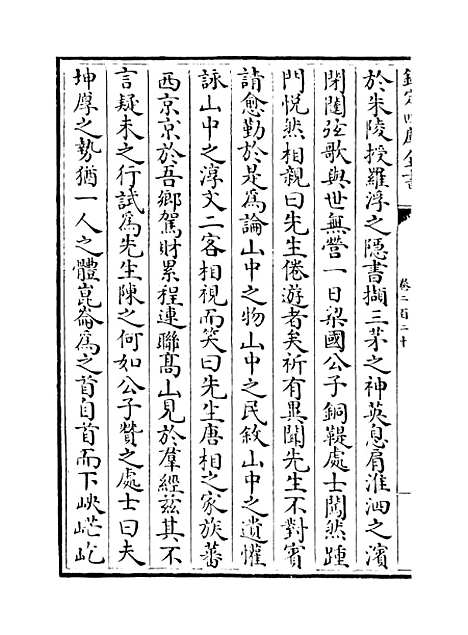 欽定四庫全書
卷二百二十
於朱陵授羅浮之隱書擷三茅之神英息肩淮泗之濱
閉闥弦歌與世無營一日梁國公子銅鞮處士闖然踵
門悦然相親曰先生倦遊者矣祈有異聞先生不對賓
請愈勤於是為論山中之物山中之民敘山中之遺懽
詠山中之淳文二客相視而笑曰先生唐相之家族蕃
西京京於吾鄉駕財累程連聯髙山見於羣經兹其不
言疑未之行試為先生陳之何如公子贊之處士曰夫
坤厚之勢猶一人之體崑崙為之首自首而下岟㟐屹